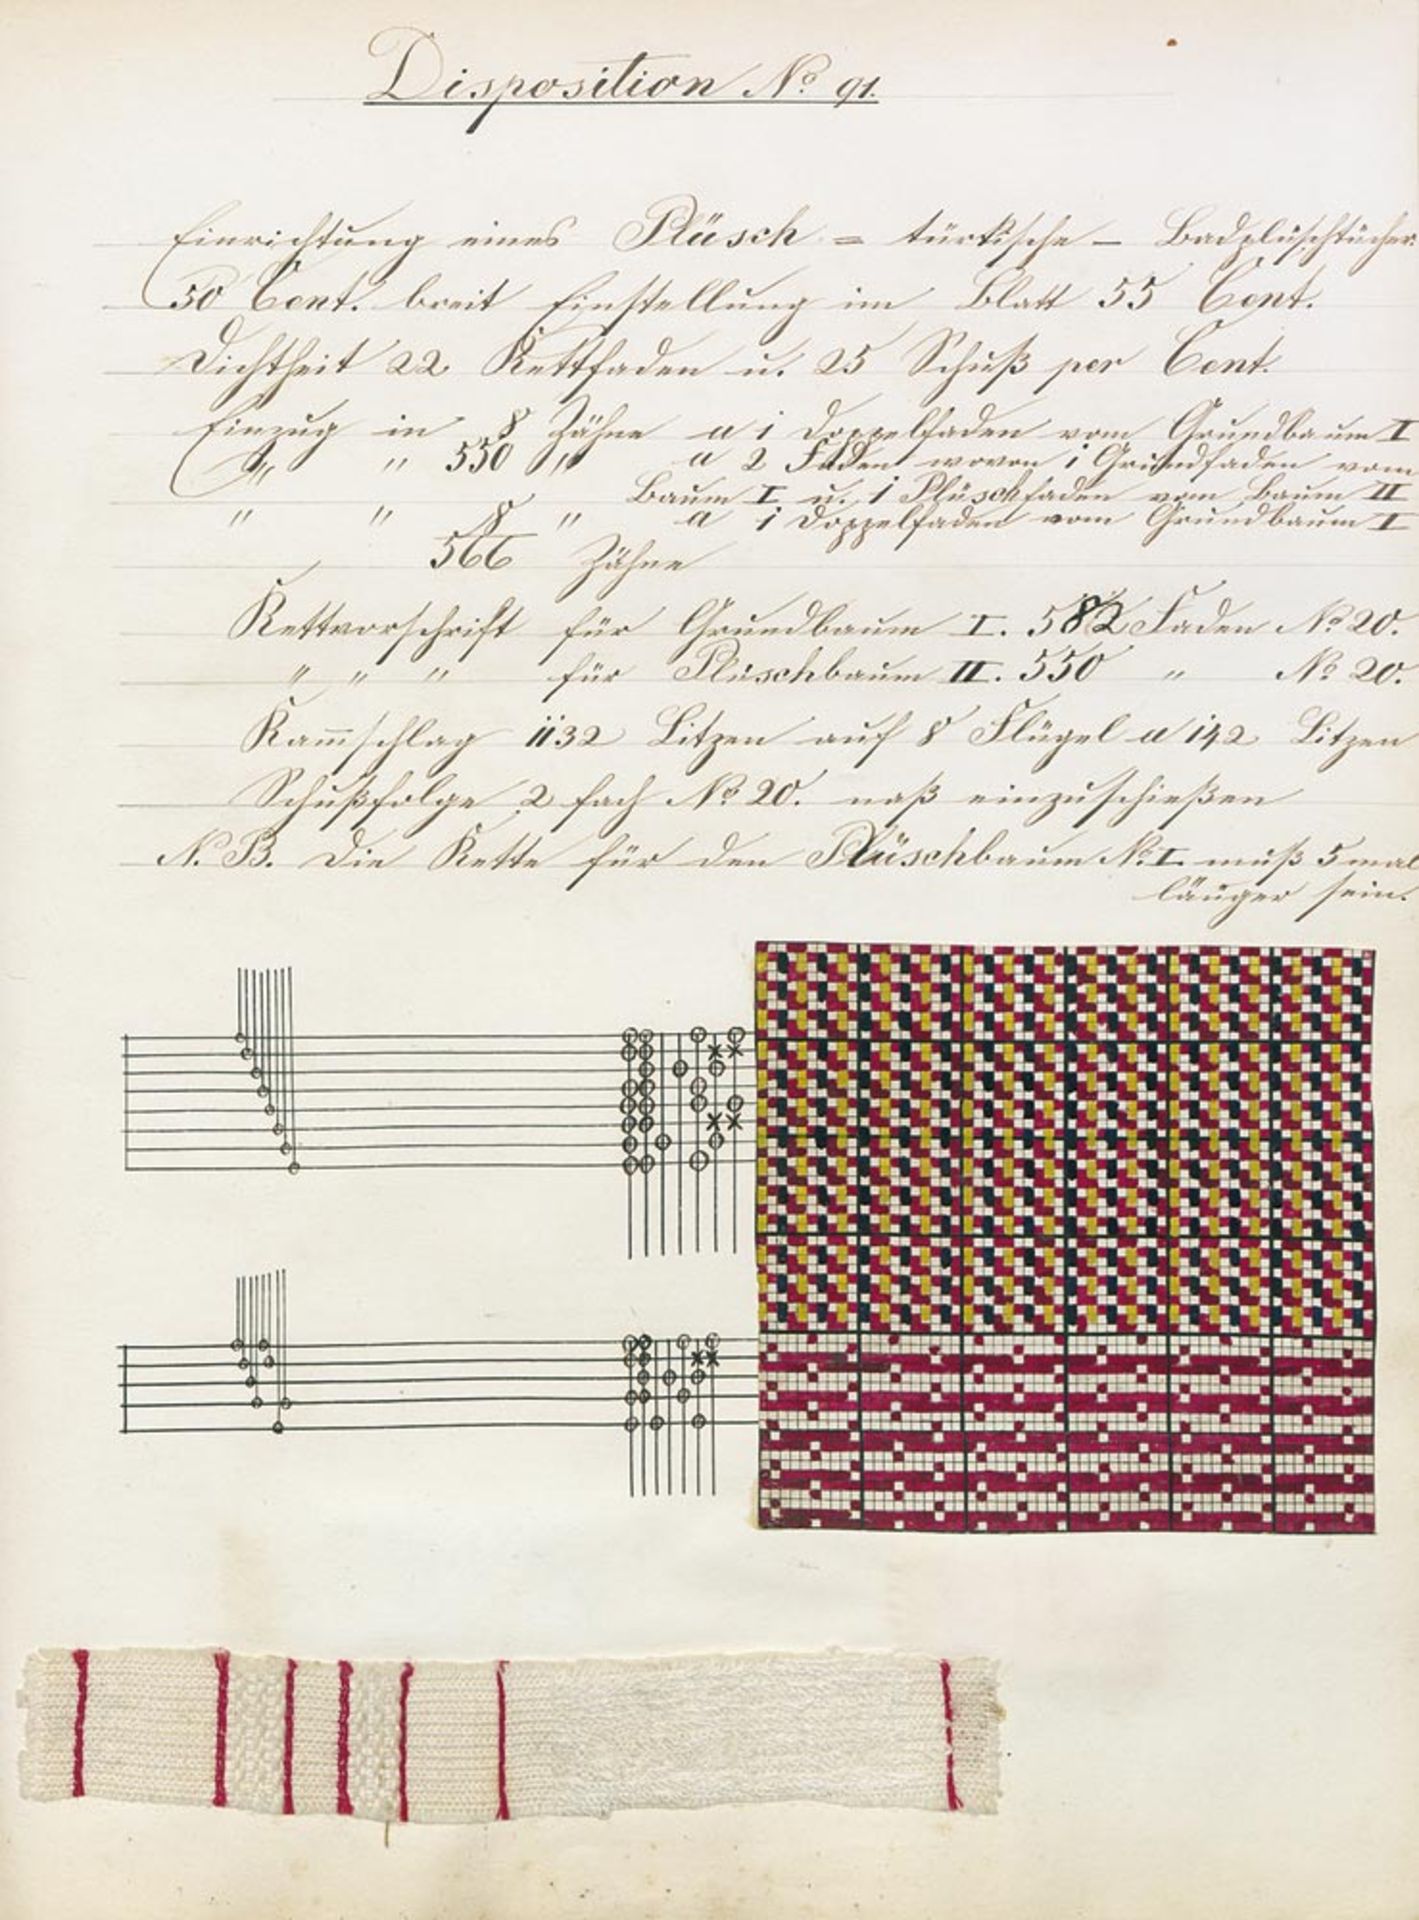 Disposition No 91.
Einrichtung eines Plüsch = türkische – Badplüschtücher
50 Cent. breit Einstellung im Blatt 55 Cent.
Dichtheit 22 Kettfaden u. 25 Schuß per Cent.
Einzug in 8 Zähne a 1 Doppelfaden vom Grundbaum I
" " 550 " a 2 Faden wovon 1 Grundfaden vom
Baum I u. 1 Plüschfaden vom Baum II
" " 8 " a 1 Doppelfaden vom Grundbaum I
566 Zähne
Kettvorschrift für Grundbaum I. 582 Faden No 20.
" " " für Plüschbaum II. 550 " No 20.
Kam̄schlag 1132 Litzen auf 8 Flügel a 142 Litzen
Schußfolge 2 fach No 20. naß einzuschießen
N. B. Die Kette für den Plüschbaum No I muß 5 mal
länger sein.